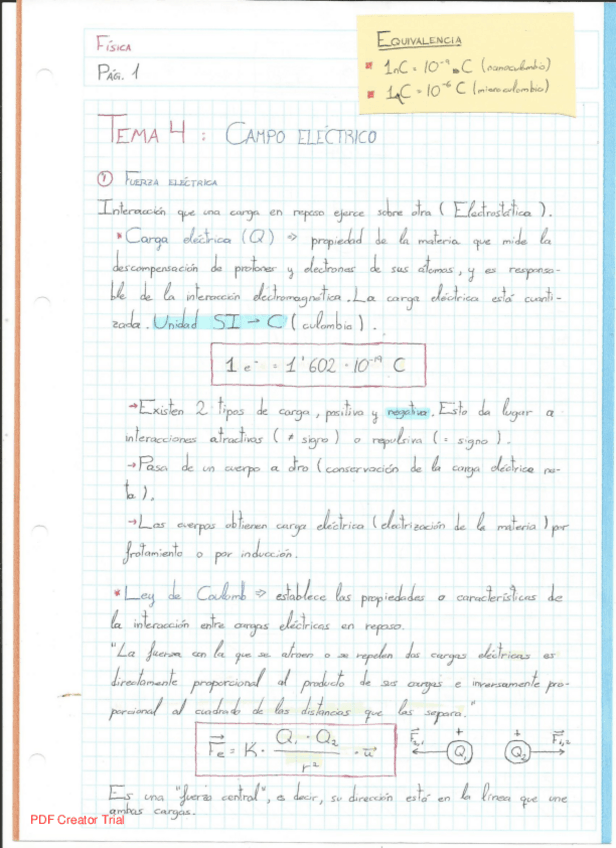 Física
Pág. 1
Equivalencia
* 1nC = 10⁻⁹ C (nanoculombio)
* 1μC = 10⁻⁶ C (microculombio)
Tema 4 : Campo eléctrico
① Fuerza eléctrica
Interacción que una carga en reposo ejerce sobre otra ( Electrostática ).
* Carga eléctrica (Q) => propiedad de la materia que mide la
descompensación de protones y electrones de sus átomos, y es responsa-
ble de la interacción electromagnética. La carga eléctrica está cuanti-
zada. Unidad SI → C ( culombio ).
1 e⁻ = 1'602 · 10⁻¹⁹ C
→ Existen 2 tipos de carga, positiva y negativa. Esto da lugar a
interacciones atractivas ( ≠ signo ) o repulsiva ( = signo ).
→ Pasa de un cuerpo a otro ( conservación de la carga eléctrica ne-
ta ).
→ Los cuerpos obtienen carga eléctrica ( electrización de la materia ) por
frotamiento o por inducción.
* Ley de Coulomb => establece las propiedades o características de
la interacción entre cargas eléctricas en reposo.
"La fuerza con la que se atraen o se repelen dos cargas eléctricas es
directamente proporcional al producto de sus cargas e inversamente pro-
porcional al cuadrado de las distancias que las separa."
F⃗e = K · Q₁ · Q₂ / r² · u⃗
F⃗₂,₁ + Q₁ + Q₂ F⃗₁,₂
Es una "fuerza central", es decir, su dirección está en la línea que une
ambas cargas.
PDF Creator Trial